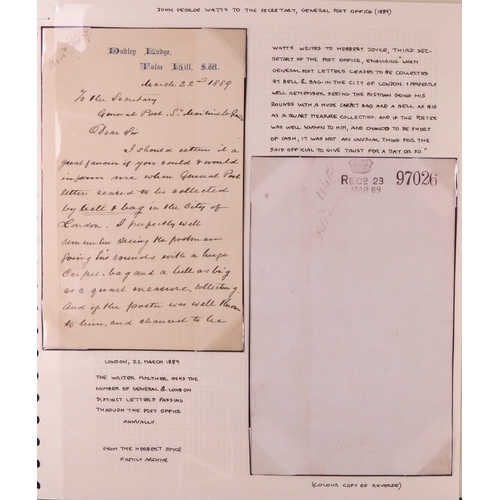 JOHN GEORGE WATTS TO THE SECRETARY, GENERAL POST OFFICE (1889)
Dudley Lodge,
Tulse Hill, S.W.
March 22nd 1889
To the Secretary
General Post. St Martins le Grand
Dear Sir
I should esteem it a
great favour if you could & would
inform me when General Post
letters ceased to be collected
by bell & bag in the City of
London. I perfectly well
remember seeing the postman
going his rounds with a huge
Carpet-bag and a bell as big
as a quart measure, collecting.
And if the poster was well known
to him, and chanced to be
LONDON, 22 MARCH 1889
THE WRITER FURTHER ASKS THE
NUMBER OF GENERAL & LONDON
DISTRICT LETTERS PASSING
THROUGH THE POST OFFICE
ANNUALLY.
FROM THE HERBERT JOYCE
FAMILY ARCHIVE
WATTS WRITES TO HERBERT JOYCE, THIRD SEC-
RETARY OF THE POST OFFICE, ENQUIRING "WHEN
GENERAL POST LETTERS CEASED TO BE COLLECTED
BY BELL & BAG IN THE CITY OF LONDON. I PERFECTLY
WELL REMEMBER SEEING THE POSTMAN GOING HIS
ROUNDS WITH A HUGE CARPET BAG AND A BELL AS BIG
AS A QUART MEASURE COLLECTING. AND IF THE POSTER
WAS WELL KNOWN TO HIM, AND CHANCED TO BE SHORT
OF CASH, IT WAS NOT AN UNUSUAL THING FOR THE
SAID OFFICIAL TO GIVE TRUST FOR A DAY OR SO."
RECD 23
MAR 89
97026
Watts
(COLOUR COPY OF REVERSE)